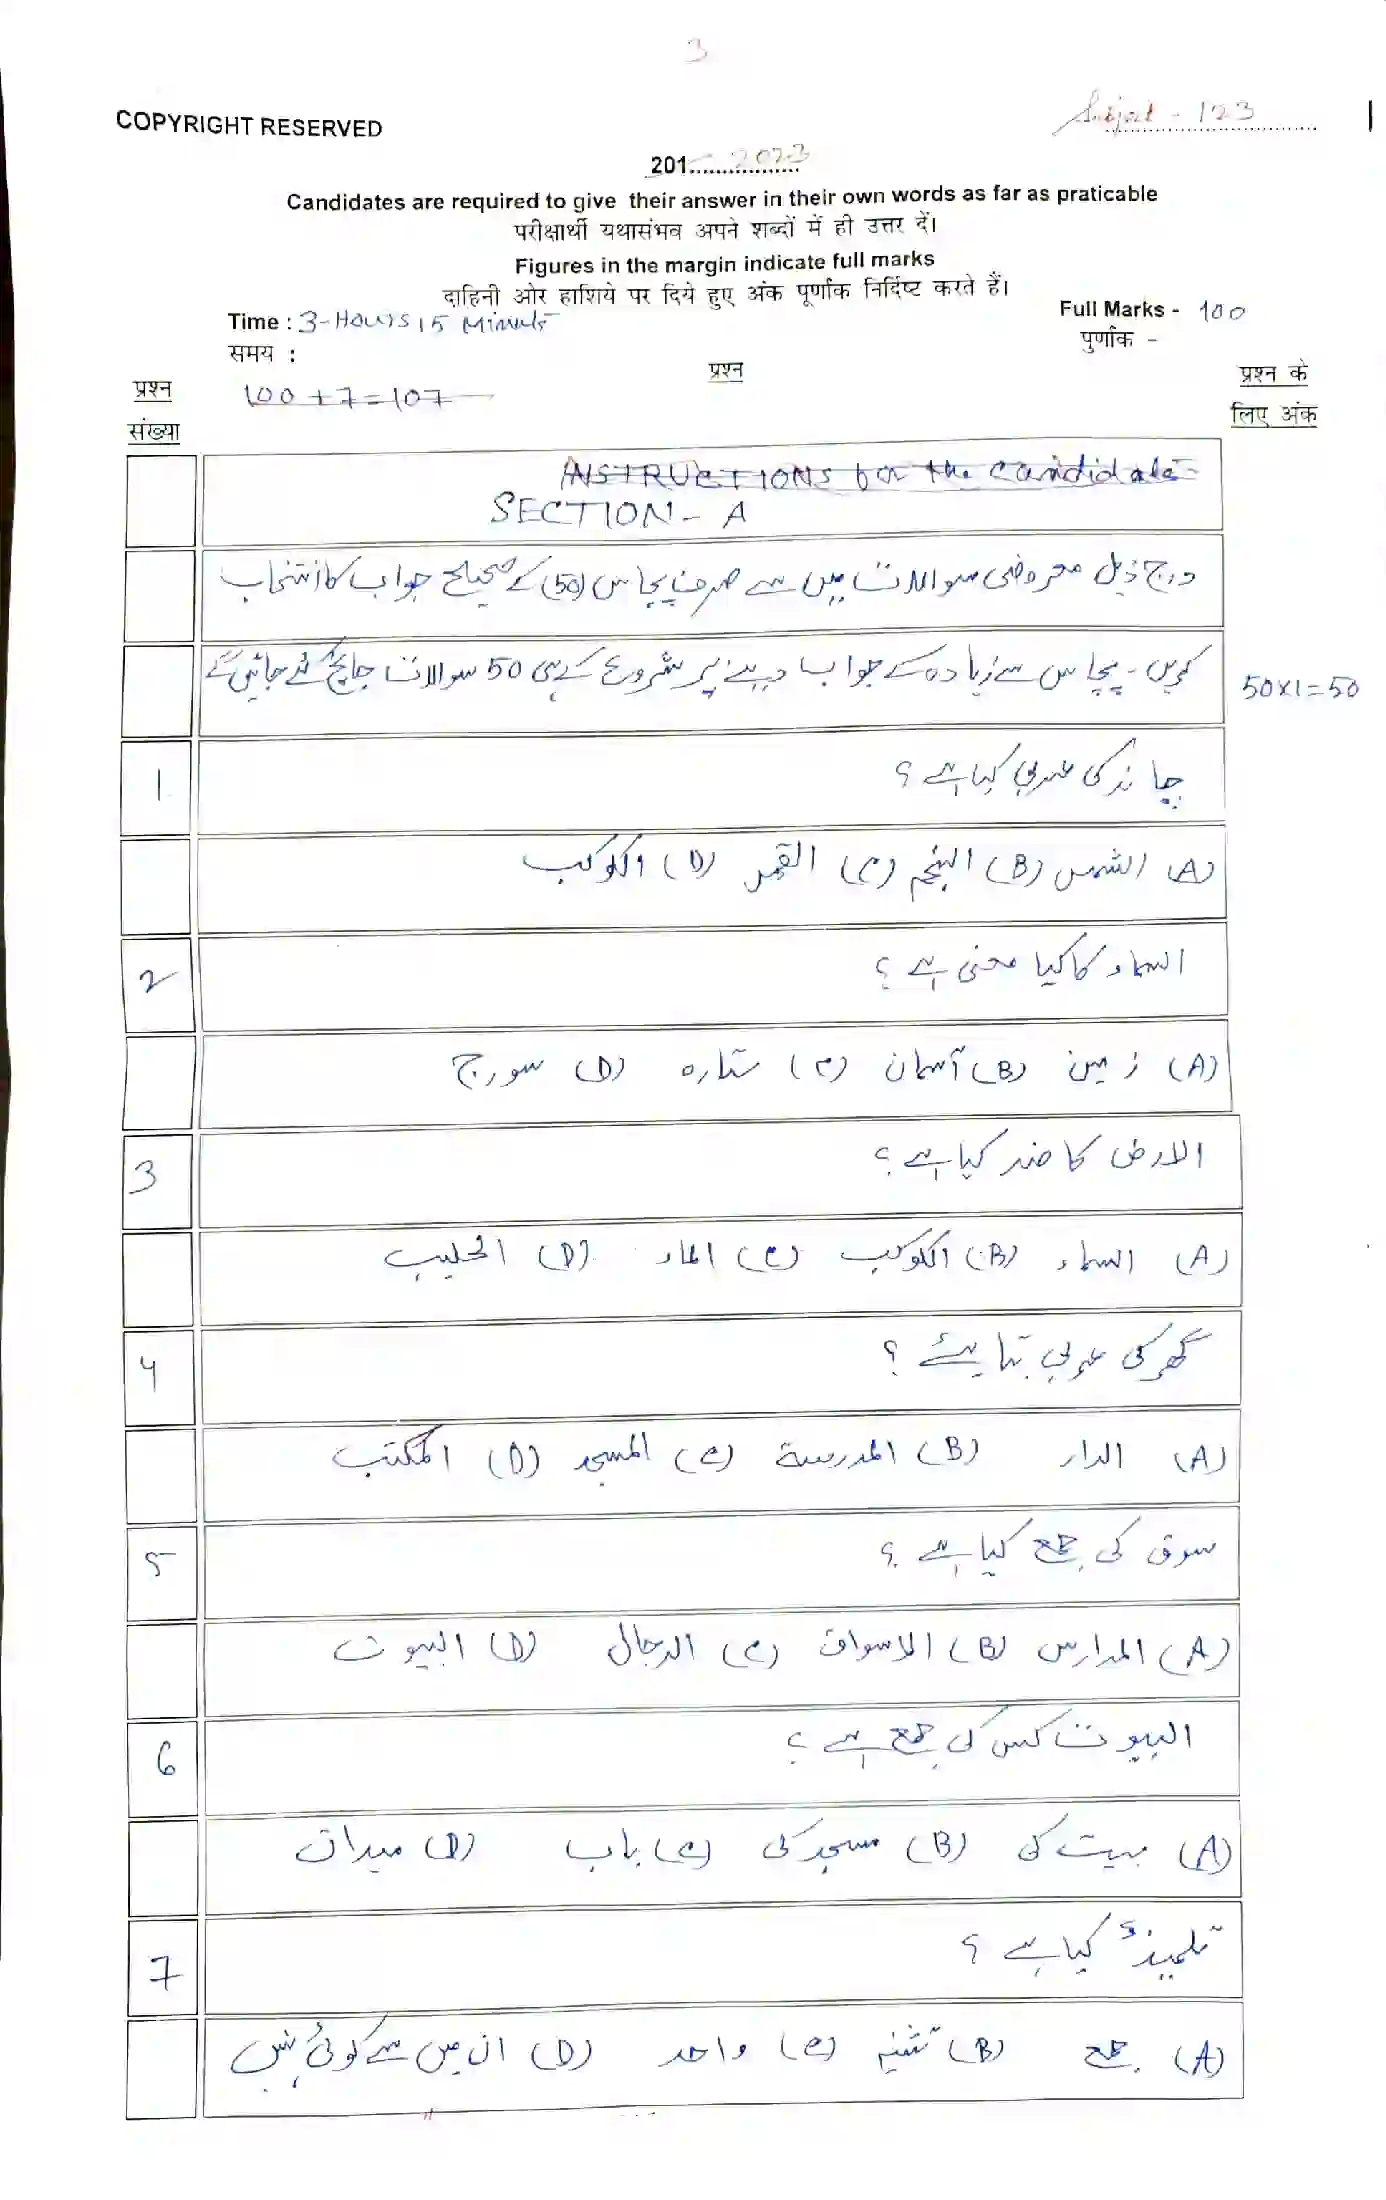 3
COPYRIGHT RESERVED
Subject - 123
201.......2023
Candidates are required to give their answer in their own words as far as praticable
परीक्षार्थी यथासंभव अपने शब्दों में ही उत्तर दें।
Figures in the margin indicate full marks
दाहिनी ओर हाशिये पर दिये हुए अंक पूर्णांक निर्दिष्ट करते हैं।
Time : 3-Hours 15 Minute
Full Marks - 100
समय :
पुर्णांक -
प्रश्न संख्या
100+7=107
प्रश्न
प्रश्न के लिए अंक
INSTRUCTIONS for the candidate
SECTION - A
درج ذیل معروضی سوالات میں سے صرف پچاس (50) کے صحیح جواب کا انتخاب
کریں۔ پچاس سے زیادہ کے جواب دینے پر شروع کے ہی 50 سوالات جانچ کئے جائیں گے
50x1=50
1. چاند کی عربی کیا ہے ؟
(A) الشمس (B) النجم (C) القمر (D) الکوکب
2 السماء کا کیا معنی ہے ؟
(A) زمین (B) آسمان (C) ستارہ (D) سورج
3 الارض کا ضد کیا ہے ؟
(A) السماء (B) الکوکب (C) الماء (D) الحلیب
4 گھر کی عربی بتایئے ؟
(A) الدار (B) المدرسة (C) المسجد (D) المکتب
5 سوق کی جمع کیا ہے ؟
(A) المدارس (B) الاسواق (C) الرجال (D) البیوت
6 البیوت کس کی جمع ہے ؟
(A) بیت کی (B) مسجد کی (C) باب (D) میدان
7 تلمیذ کیا ہے ؟
(A) جمع (B) تثنیہ (C) واحد (D) ان میں سے کوئی نہیں